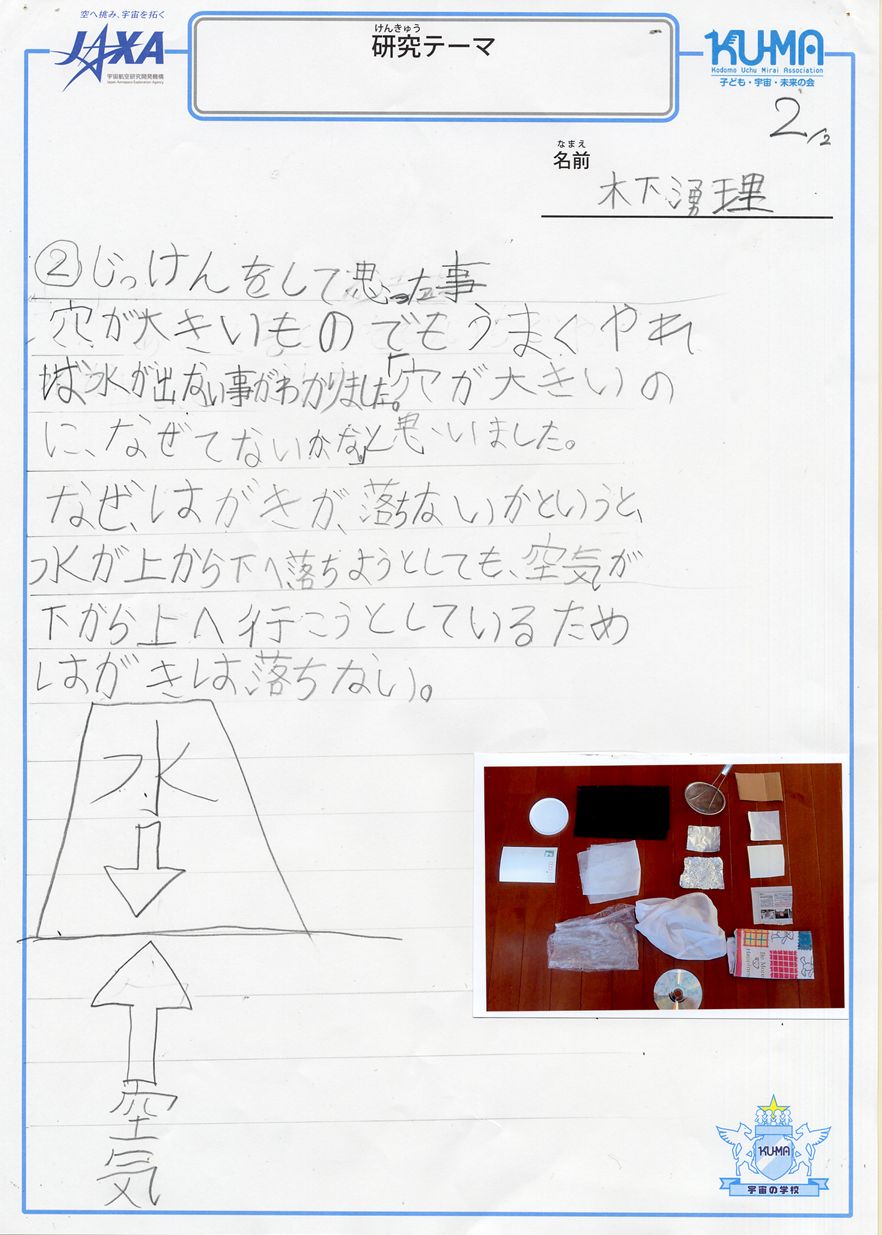 空へ挑み、宇宙を拓く
JAXA
宇宙航空研究開発機構
Japan Aerospace Exploration Agency
けんきゅう
研究テーマ
KU-MA
Kodomo Uchu Mirai Association
子ども・宇宙・未来の会
2/2
なまえ
名前
木下湧理
②じっけんをして思った事
穴が大きいものでもうまくやれ
ば水が出ない事がわかりました。「穴が大きいの
に、なぜてないかな。」と思いました。
なぜ、はがきが、落ちないかというと、
水が上から下へ落ちようとしても、空気が
下から上へ行こうとしているため
はがきは落ちない。
水
空気
Be More
KU-MA
宇宙の学校